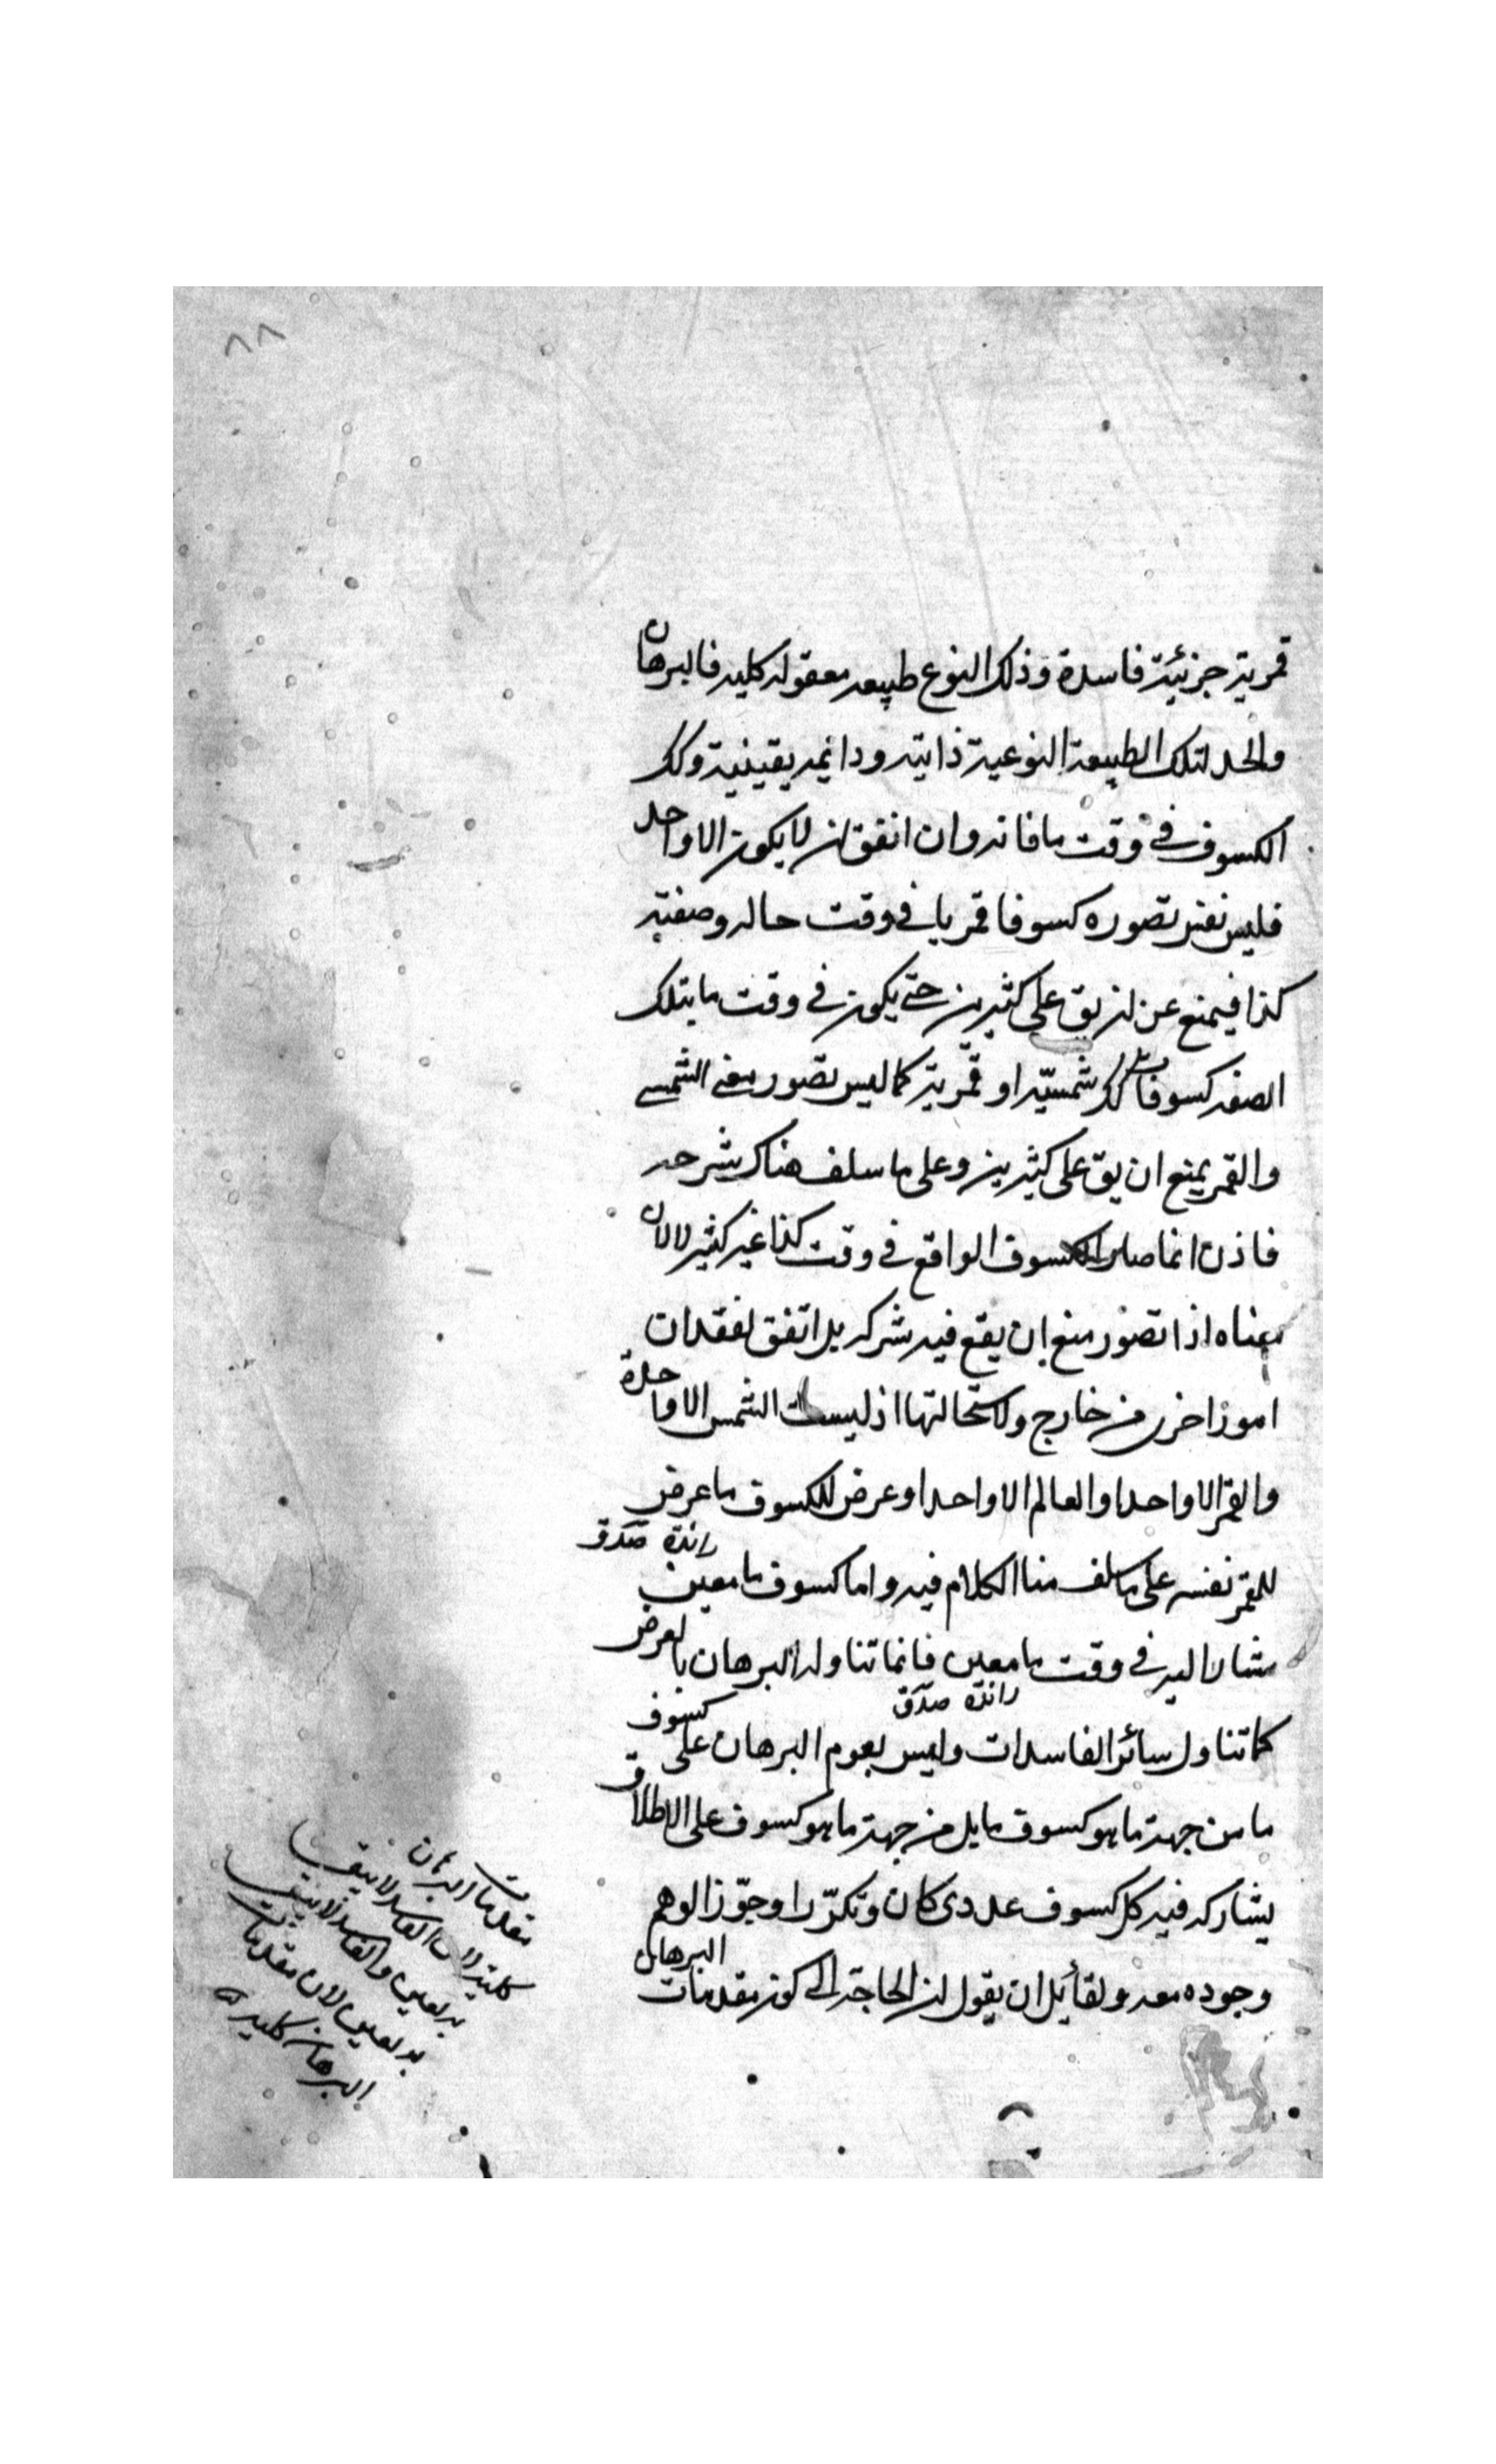 ٨٨
قمرية جزئية فاسدة وذلك النوع طبيعه معقوله كليه فالبرهان
والحد لتلك الطبيعة النوعية ذاتيه ودائمه يقينية وكك
الكسوف في وقت ما فانه وان اتفق ان لا يكون الا واحد
فليس نفس تصوره كسوفا قمريا في وقت حاله وصفته
كذا فيمنع عن ان يق على كثيرين حتى يكون في وقت ما بتلك
الصفه كسوفات كك شمسيّه او قمرية كما ليس تصور معنى الشمس
والقمر يمنع ان يق على كثيرين وعلى ما سلف هناك شرحه
فاذن انما صار الكسوف الواقع في وقت كذا غير كثير لا لان
معناه اذا تصور منع ان يقع فيه شركه بل اتفق لفقدان
امور اخرى من خارج ولاستحالتها اذ ليست الشمس الا واحدة
والقمر الا واحدا والعالم الا واحدا وعرض للكسوف ما عرض
للقمر نفسه على ما سلف منا الكلام فيه واما كسوف ما معين
مشار اليه في وقت ما معين فانما تناوله البرهان بالعرض
كما تناول سائر الفاسدات وليس يقوم البرهان على كسوف
ما من جهة ما هو كسوف ما بل من جهة ما هو كسوف على الاطلاق
يشاركه فيه كل كسوف عددى كان وتكرّر او جوّز الوهم
وجوده معه ولقائل ان يقول ان الحاجة الى كون مقدمات البرهان
مقدمات البرهان
كليته لان الفاسد لا يبقى
به يقين والفاسد لا يبقى
به يقين لان مقدمات
البرهان كليه